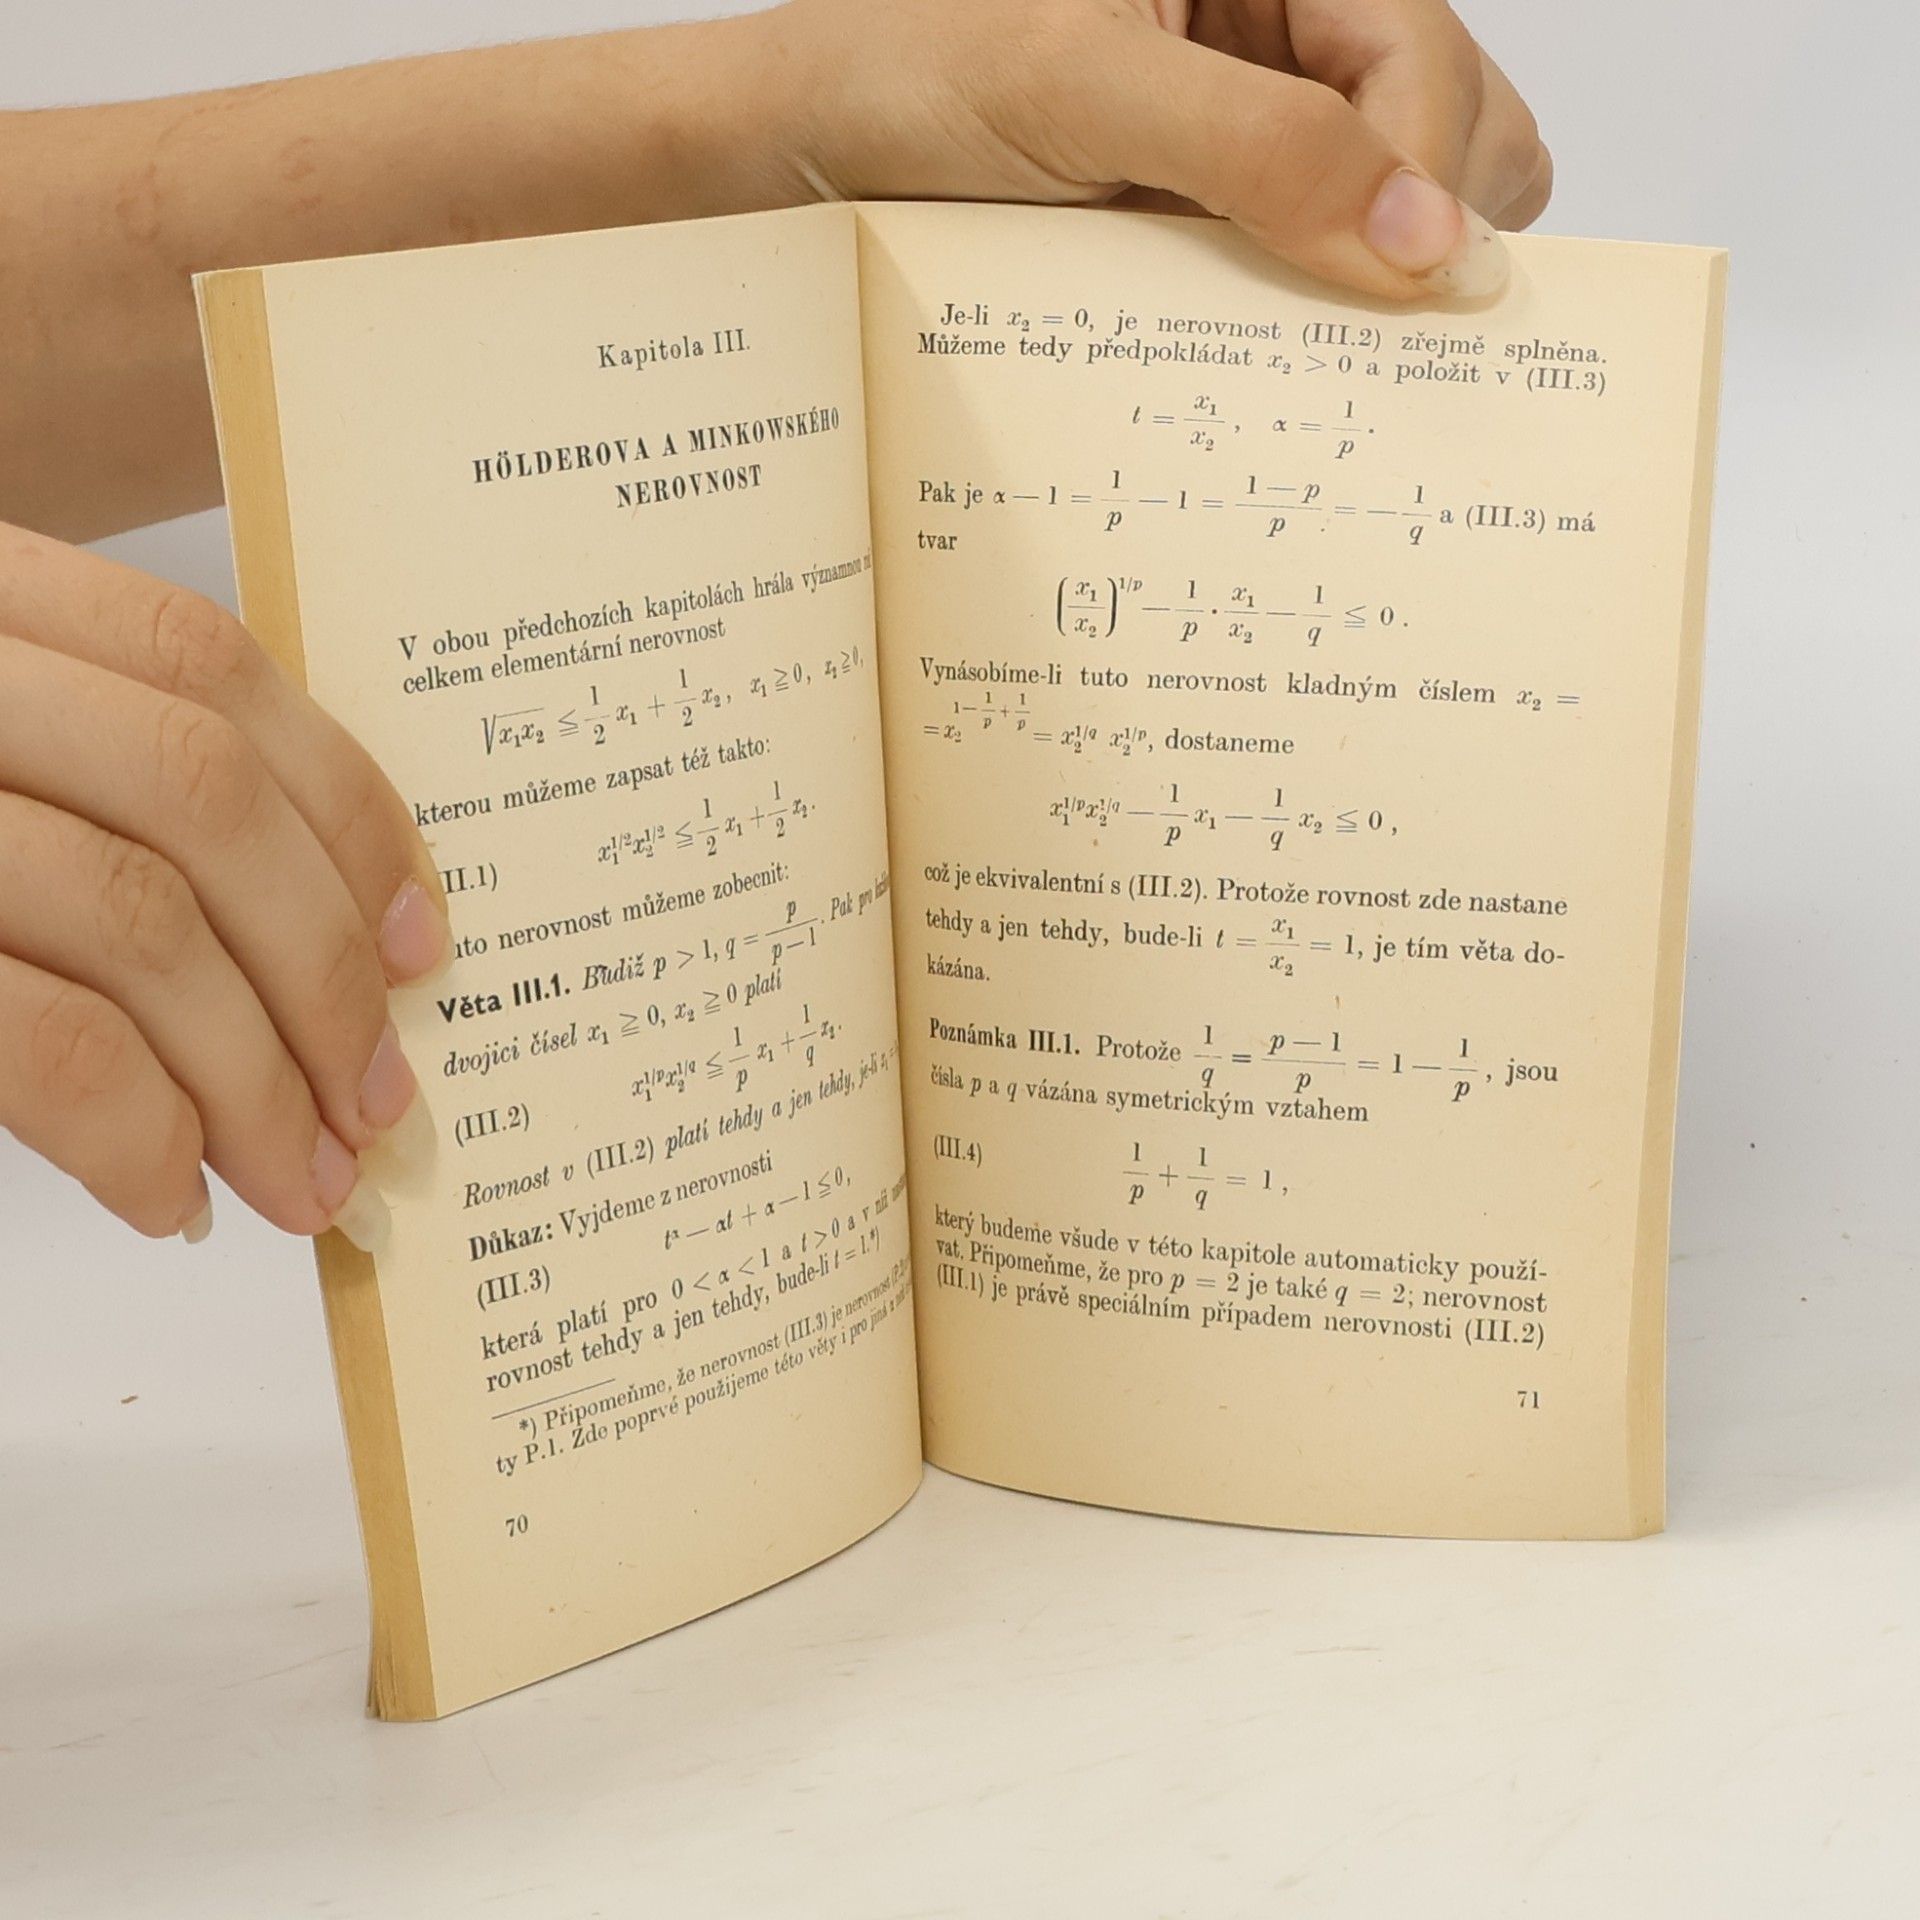 Kapitola III.
HÖLDEROVA A MINKOWSKÉHO
NEROVNOST
V obou předchozích kapitolách hrála významnou
celkem elementární nerovnost
√(x₁x₂) ≦ 1/2 x₁ + 1/2 x₂, x₁ ≧ 0, x₂ ≧ 0,
kterou můžeme zapsat též takto:
II.1) x₁^{1/2}x₂^{1/2} ≦ 1/2 x₁ + 1/2 x₂.
uto nerovnost můžeme zobecnit:
Věta III.1. Budiž p > 1, q = p/(p − 1). Pak pro
dvojici čísel x₁ ≧ 0, x₂ ≧ 0 platí
(III.2) x₁^{1/p}x₂^{1/q} ≦ 1/p x₁ + 1/q x₂.
Rovnost v (III.2) platí tehdy a jen tehdy, je-li x₁ =
Důkaz: Vyjdeme z nerovnosti
(III.3) t^α − αt + α − 1 ≦ 0,
která platí pro 0 < α < 1 a t > 0 a v níž
rovnost tehdy a jen tehdy, bude-li t = 1.*)
*) Připomeňme, že nerovnost (III.3) je nerovnost
ty P.1. Zde poprvé použijeme této věty i pro jiná α než
70
Je-li x₂ = 0, je nerovnost (III.2) zřejmě splněna.
Můžeme tedy předpokládat x₂ > 0 a položit v (III.3)
t = x₁/x₂, α = 1/p.
Pak je α — 1 = 1/p — 1 = (1 — p)/p = — 1/q a (III.3) má
tvar
(x₁/x₂)^{1/p} — 1/p · x₁/x₂ — 1/q ≦ 0.
Vynásobíme-li tuto nerovnost kladným číslem x₂ =
= x₂^{1 − 1/p + 1/p} = x₂^{1/q} x₂^{1/p}, dostaneme
x₁^{1/p}x₂^{1/q} — 1/p x₁ — 1/q x₂ ≦ 0,
což je ekvivalentní s (III.2). Protože rovnost zde nastane
tehdy a jen tehdy, bude-li t = x₁/x₂ = 1, je tím věta do-
kázána.
Poznámka III.1. Protože 1/q = (p — 1)/p = 1 — 1/p, jsou
čísla p a q vázána symetrickým vztahem
(III.4) 1/p + 1/q = 1,
který budeme všude v této kapitole automaticky použí-
vat. Připomeňme, že pro p = 2 je také q = 2; nerovnost
(III.1) je právě speciálním případem nerovnosti (III.2)
71